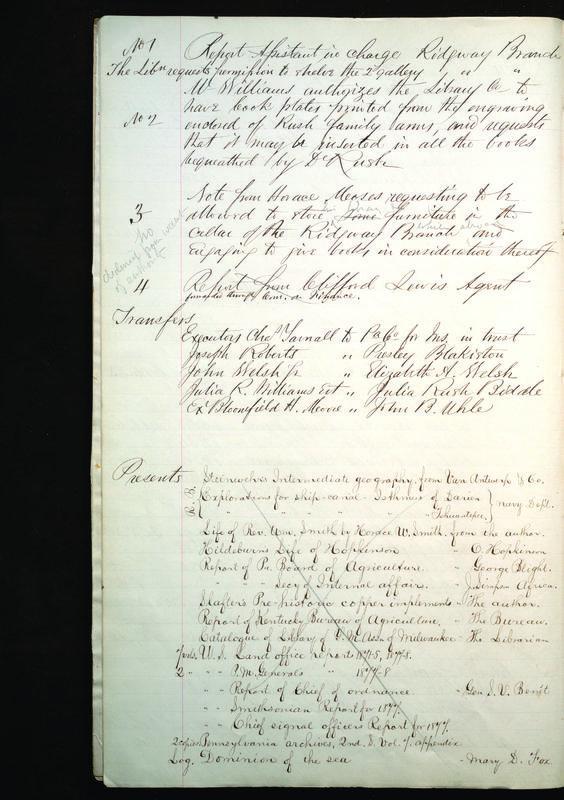 No 1 Report Assistant in charge Ridgway Branch
The Libn requests permission to shelve the 2d gallery " "
Mr Williams authorizes the Library Co to
have book plates printed from the engraving
No 2 endorsed of Rush family arms, and requests
that it may be inserted in all the books
bequeathed by Dr Rush
3 Note from Horace Moses requesting to be
allowed to store some furniture in the
cellar of the Ridgway Branch and
engaging to give books in consideration thereof
no
of authority
4 Report from Clifford Lewis Agent
forwarded through Com. on Finance.
Transfers
Executors Chas Yarnall to Pa Co for Ins. in trust
Joseph Roberts " Presley Blakiston
John Welsh Jr " Elizabeth A. Welsh
Julia R. Williams est " Julia Rush Biddle
Ex Bloomfield H. Moore " John B. Uhle
Presents
Steinwehr's Intermediate geography. from Van Antwerp & Co.
R. B. Explorations for ship-canal- Isthmus of Darien } Navy Dept.
" " " " Tehuantepec.
Life of Rev. Wm. Smith by Horace W. Smith. from the author.
Hildeburn's Life of Hopkinson " O. Hopkinson
Report of Pa. Board of Agriculture. " George Blight.
" " Secy of Internal affairs. "
Slafter's Pre-historic copper implements - The author.
Report of Kentucky Bureau of Agriculture. " The Bureau.
Catalogue of Library of Y. M. Assn. of Milwaukee - The Librarian
7 vols. U. S. Land office reports 1874-5, 1877-8.
2 " " P. M. Generals " 1877-8
" " Report of Chief of ordnance. - Gen. S. V. Benét
" " Smithsonian Report for 1877.
" " Chief signal officer's Report for 1877.
2 copies Pennsylvania archives, 2nd. S. Vol. 7. appendix
Log. Dominion of the sea - Mary D. Fox